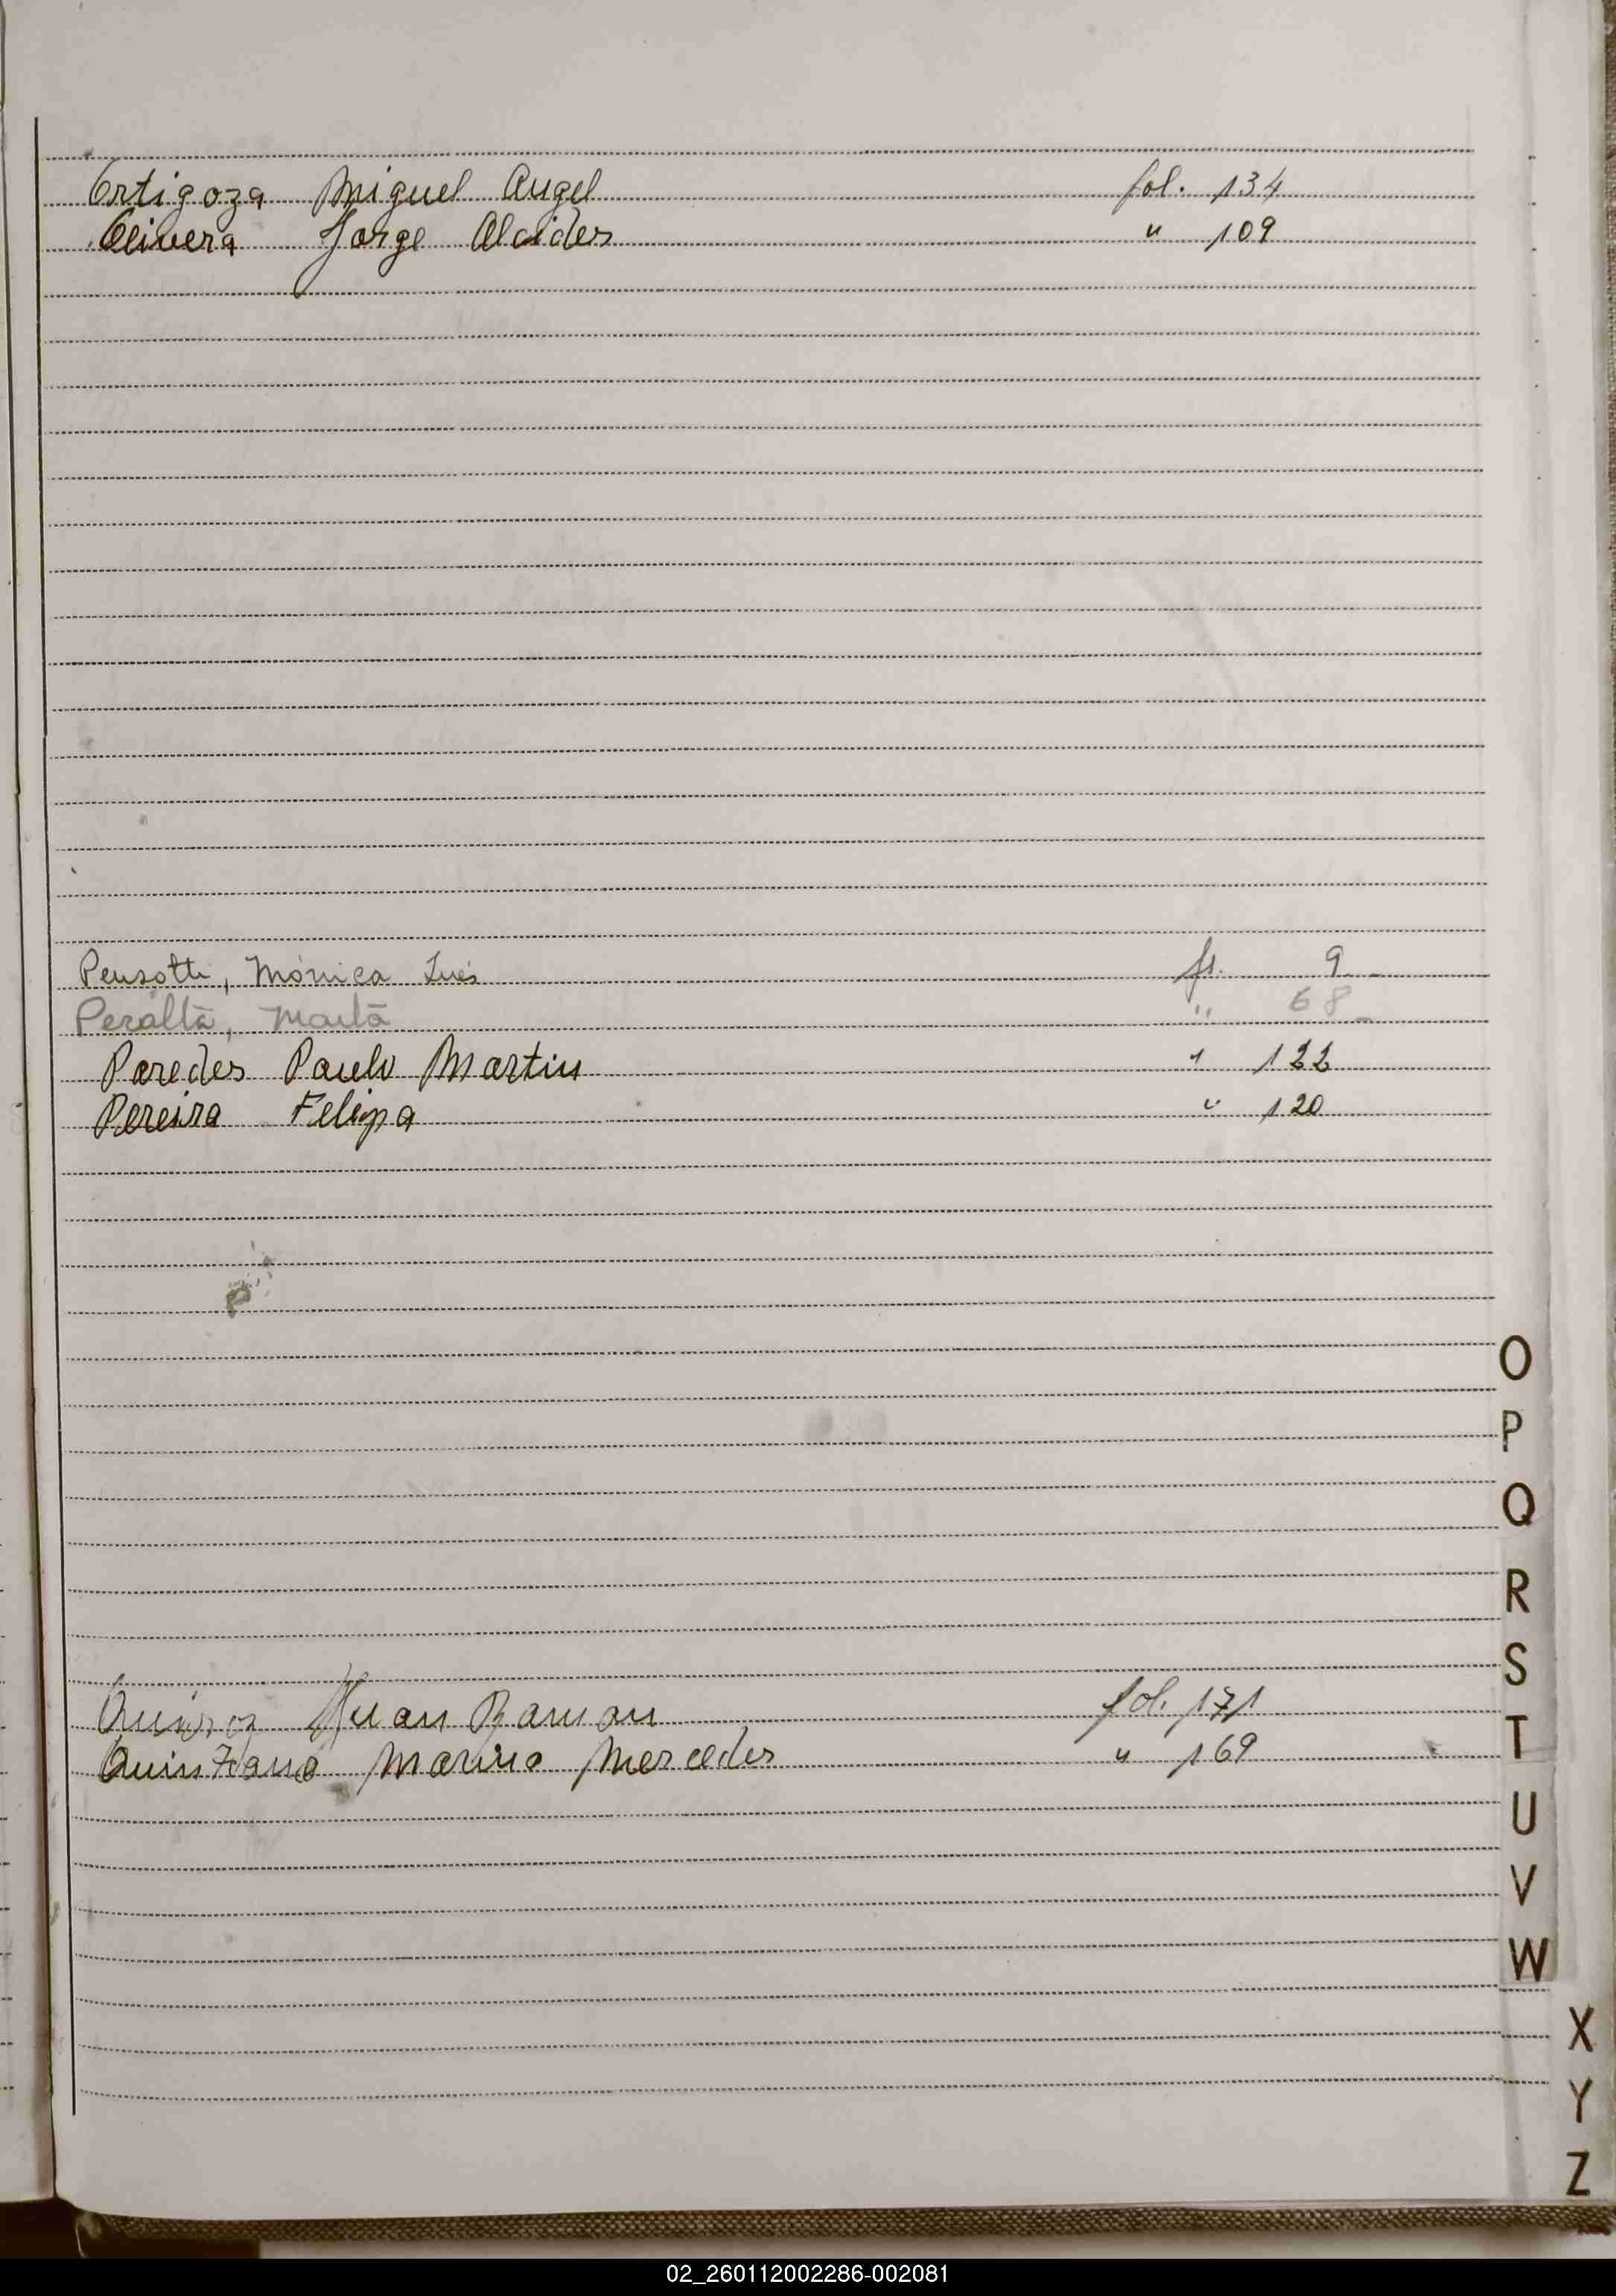 Ortigoza Miguel Angel fol. 134
Olivera Jorge Alcides " 109
Pensotti, Mónica Inés fs. 9 -
Peralta, Marta " 68 -
Paredes Paulo Martin " 122
Pereira Felipa " 120
O
P
Q
R
S
Quiroz Juan Ramon fol. 171
T
Quintana Marina Mercedes " 169
U
V
W
X
Y
Z
02_260112002286-002081